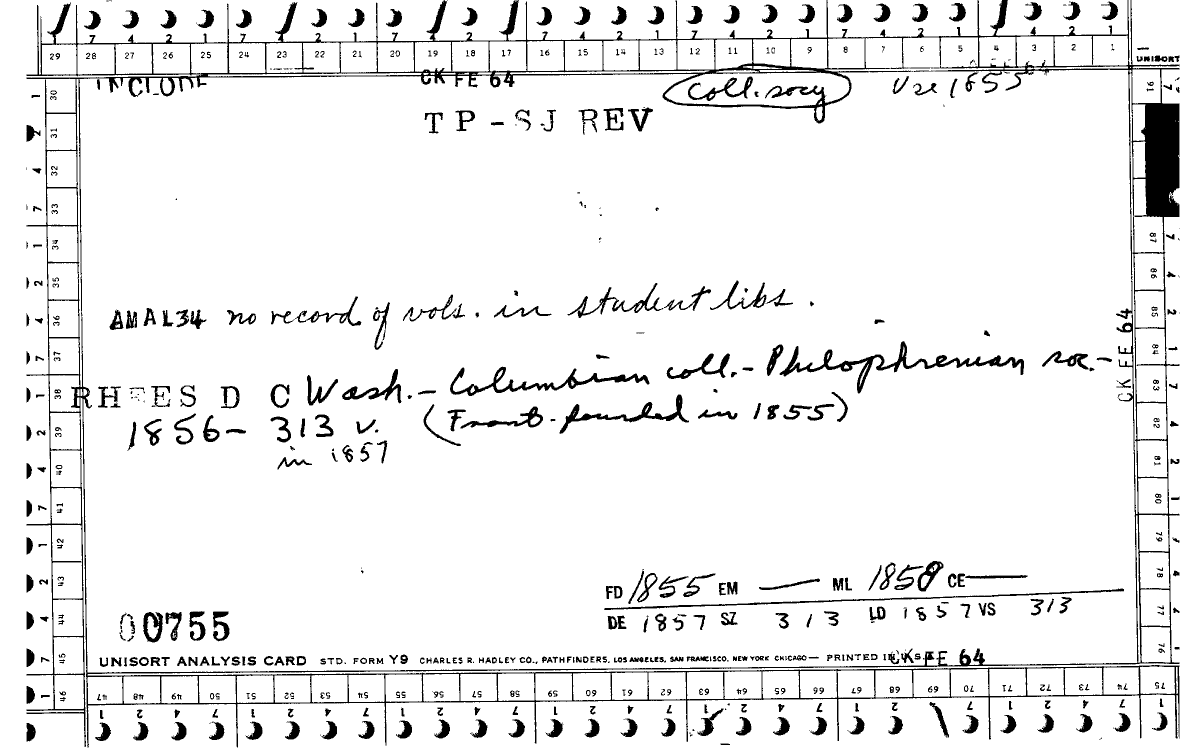 7 4 2 1 7 4 2 1 7 4 2 1 7 4 2 1 7 4 2 1 7 4 2 1 7 4 2 1
29 28 27 26 25 24 23 22 21 20 19 18 17 16 15 14 13 12 11 10 9 8 7 6 5 4 3 2 1
UNISORT
INCLUDE CK FE 64 Coll. socy Use 1855
TP-SJ REV
AMAL34 no record of vols. in student libs.
RHEES D C Wash. - Columbian coll. - Philophrenian soc.-
1856- 313 v. (Front. founded in 1855)
in 1857
CK FE 64
FD 1855 EM — ML 1858 CE —
DE 1857 SZ 313 LD 1857 VS 313
00755
UNISORT ANALYSIS CARD STD. FORM Y9 CHARLES R. HADLEY CO., PATHFINDERS, LOS ANGELES, SAN FRANCISCO, NEW YORK CHICAGO — PRINTED IN U.S.A.
CK FE 64
30 31 32 33 34 35 36 37 38 39 40 41 42 43 44 45 46
47 48 49 50 51 52 53 54 55 56 57 58 59 60 61 62 63 64 65 66 67 68 69 70 71 72 73 74 75
76 77 78 79 80 81 82 83 84 85 86 87 91